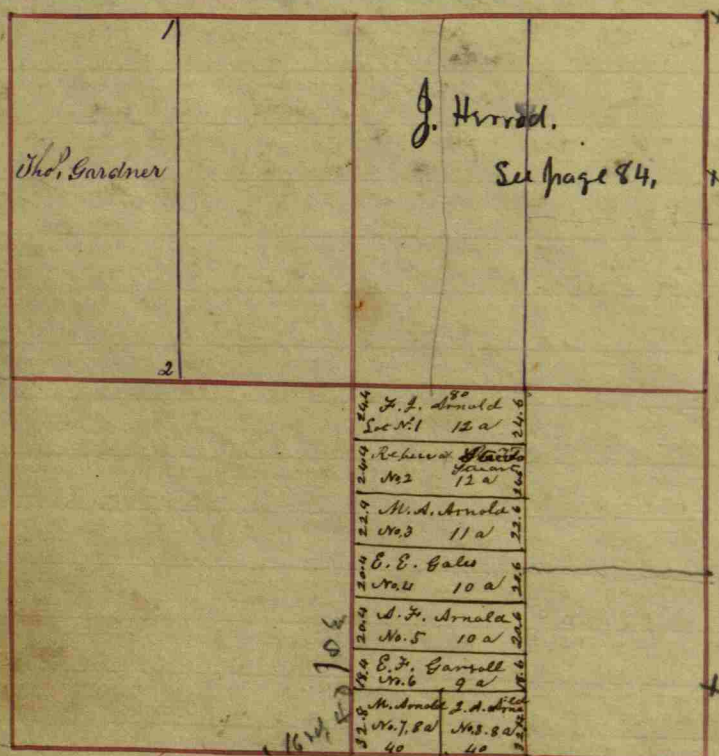 1
J. Herrod.
Thos. Gardner
See page 84,
2
80
24.4 F. J. Arnold 24.6
Lot No.1 12 a
24.4 Rebecca Stuart
No.2 12 a
22.4 M. A. Arnold 22.6
No.3 11 a
20.4 E. E. Gales 20.6
No.4 10 a
20.4 A. F. Arnold 20.6
No.5 10 a
18.4 E. F. Garroll 18.6
No.6 9 a
32.8 M. Arnold J. A.
No.7, 8a No.8. 8a
40 40